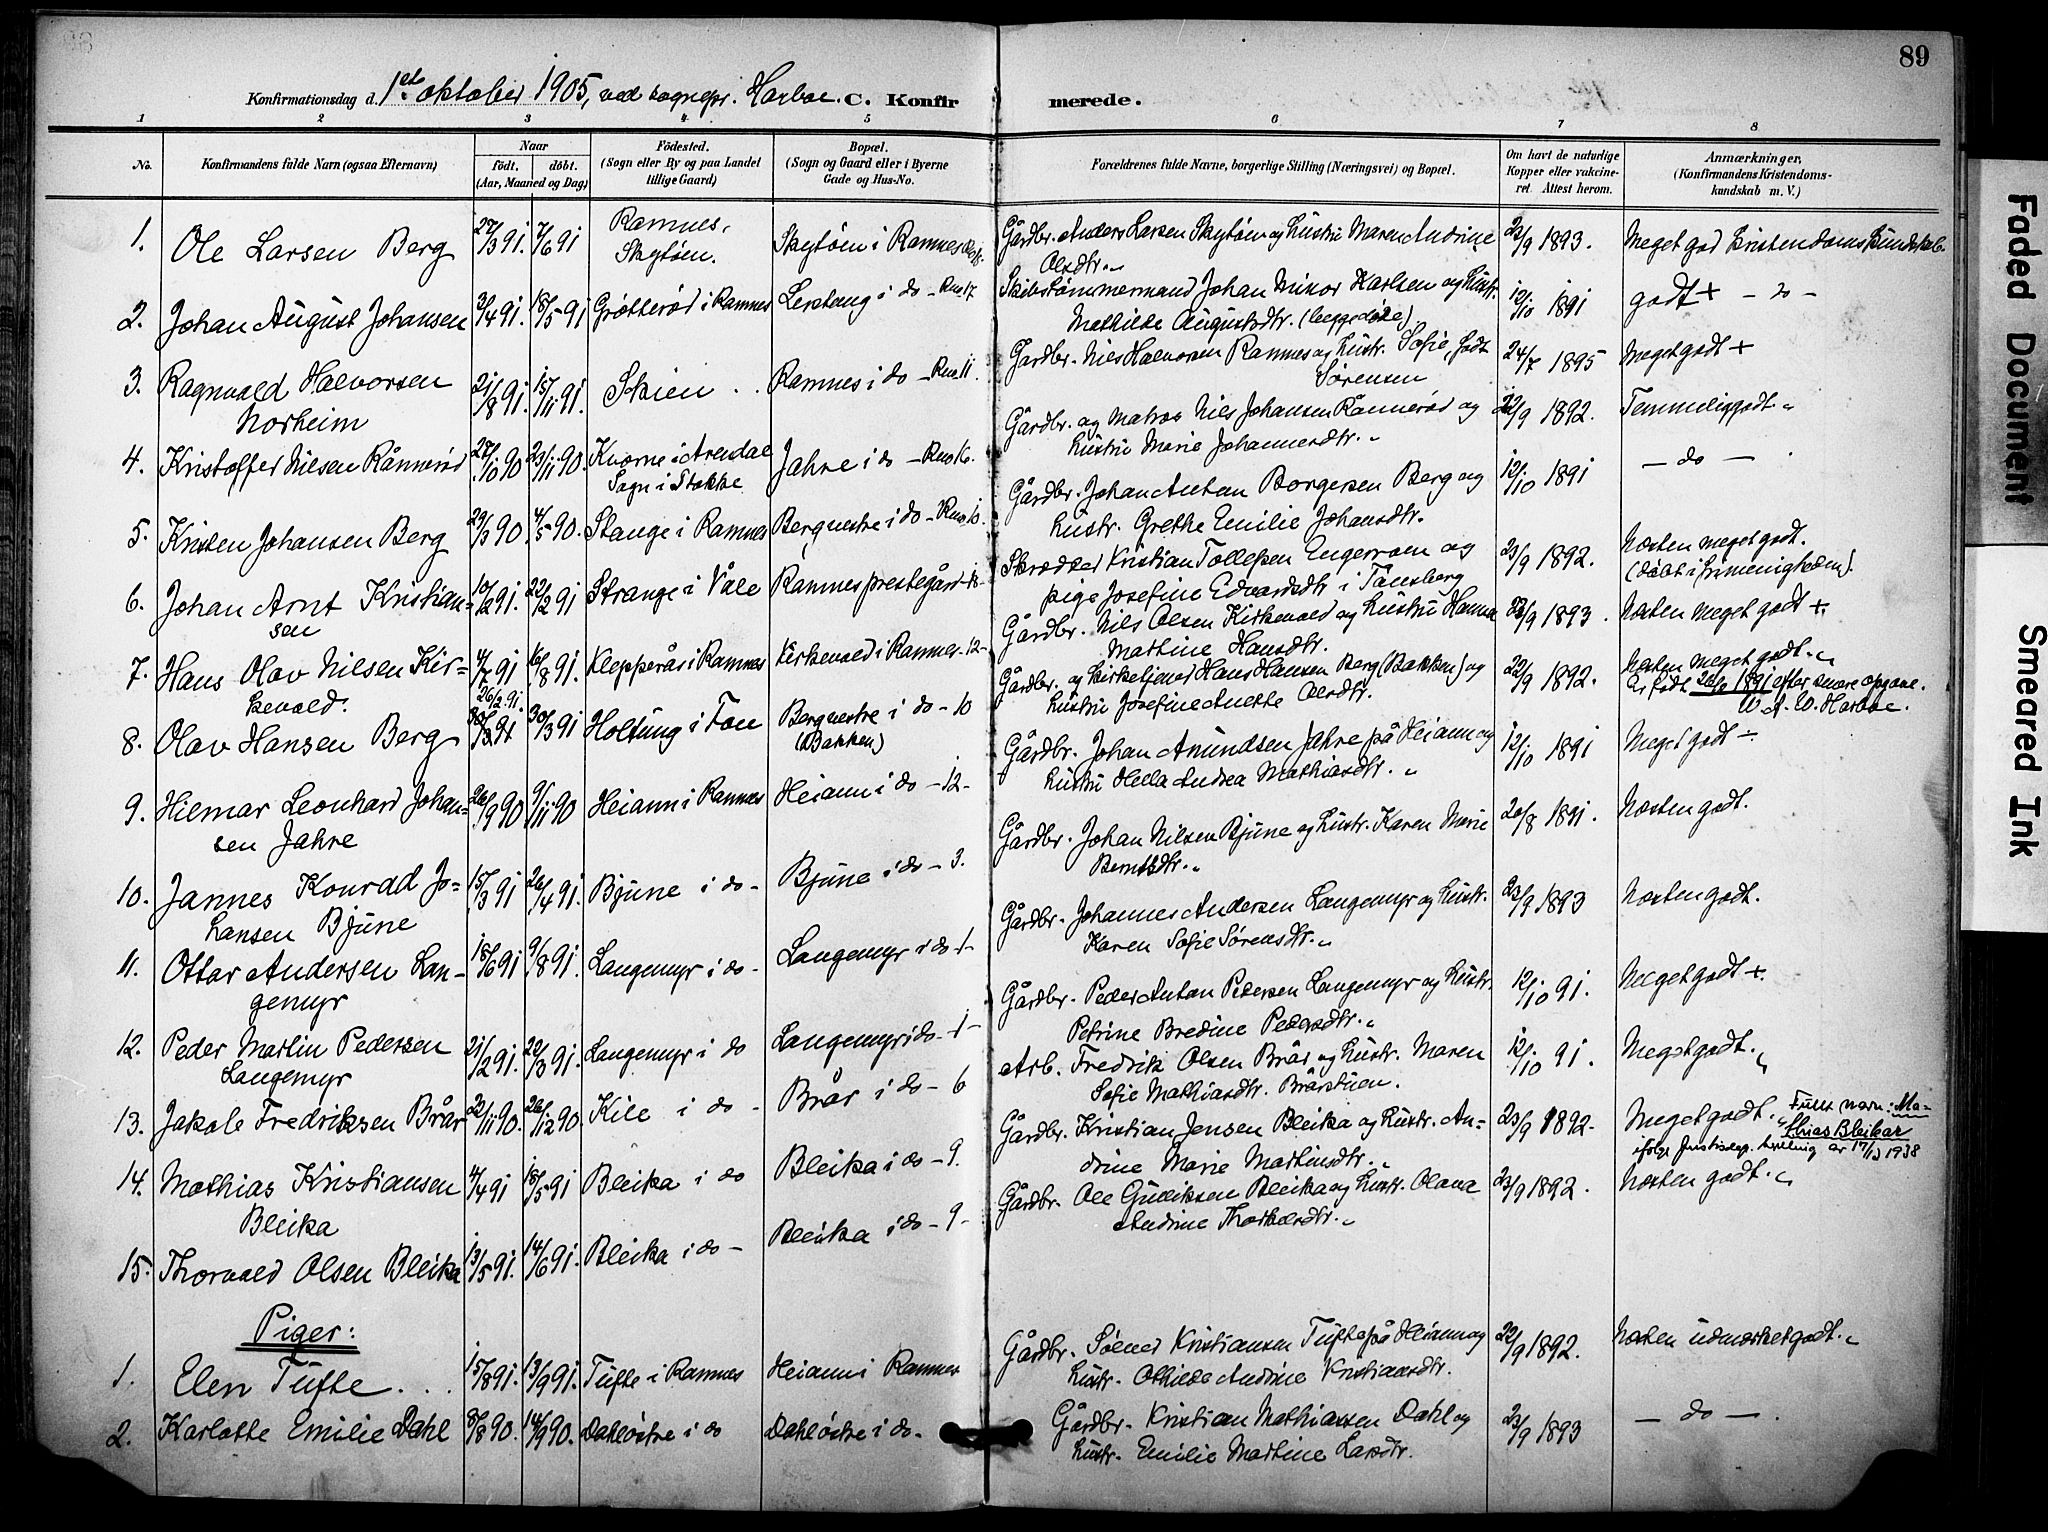 89
Konfirmationsdag d. 1ste oktober 1905, ved sognepr. Harboe. C. Konfirmerede.
1 2 3 4 5 6 7 8
No. Konfirmandens fulde Navn (ogsaa Efternavn) Naar født. døbt. (Aar, Maaned og Dag) Födested. (Sogn eller By og paa Landet tillige Gaard) Bopæl. (Sogn og Gaard eller i Byerne Gade og Hus-No. Forældrenes fulde Navne, borgerlige Stilling (Næringsvei) og Bopæl. Om havt de naturlige Kopper eller vaccineret. Attest herom. Anmærkninger, (Konfirmandens Kristendomskundskab m. V.)
1. Ole Larsen Berg 27/3 91. 7/6 91 Ramnes, Skytøen. Skytøen i Ramnes Gårdbr. Anders Larsen Skytøen og hustru Maren Andrine Olsdtr. 23/9 1893. Meget god kristendomskundskab.
2. Johan August Johansen 3/4 91. 18/5 91 Grøtterød i Ramnes Lerstang i do - Rno 17 Skibstømmermand Johan Minor Karlsen og hustr. Mathilde Augustsdtr. (begge døde) 12/10 1891 godt + - do -
3. Ragnvald Halvorsen Norheim 21/8 91. 15/11 91. Skien Ramnes i do - Rno 11. Gårdbr. Nils Halvorsen Ramnes og hustr. Sofie, født Sørensen 24/7 1895 Meget godt +
4. Kristoffer Nilsen Rånnerød 27/10 90 23/11 90. Kverne i Arendal Sogn i Stokke Jahre i do - Rno 16. Gårdbr. og matros Nils Johansen Rånnerød og hustru Marie Johannesdtr. 22/9 1892. Temmelig godt.
5. Kristen Johansen Berg 29/3 90 4/5 90. Stange i Ramnes Berg vestre i do - Rno 10. Gårdbr. Johan Anton Borgersen Berg og hustr. Grethe Emilie Johansdtr. 12/10 1891 - do -
6. Johan Arnt Kristiansen 10/2 91. 22/2 91 Strange i Våle Ramnes prestegård Skrædder Kristian Tollefsen Engerroen og pige Josefine Edvardsdtr i Tønsberg 23/9 1892. Næsten meget godt. (døbt i frimenigheden).
7. Hans Olav Nilsen Kirkevold. 4/7 91 16/8 91. Klepperås i Ramnes Kirkevold i Ramnes - 12 - Gårdbr. Nils Olsen Kirkevold og hustru Hanna Mathine Hansdtr. 23/9 1893. Næsten meget godt +
8. Olav Hansen Berg 26/2 91. 30/3 91 Holtung i Fon Berg vestre i do - 10 (Bakken) Gårdbr. og kirketjener Hans Hansen Berg (Bakken) og hustru Josefine Anette Olsdtr. 22/9 1892. Næsten meget godt. Er født 26/2 1891 efter senere opgave. W. A. W. Harboe.
9. Hilmar Leonhard Johansen Jahre 26/9 90 9/11 90 Heian i Ramnes Heian i do - 12 - Gårdbr. Johan Amundsen Jahre på Heian og hustru Hella Andrea Mathiasdtr. 12/10 1891 Meget godt ÷
10. Jannes Konrad Johansen Bjune 15/3 91 26/4 91. Bjune i do - Bjune i do - 3. Gårdbr. Johan Nilsen Bjune og hustr. Karen Marie Berntsdtr. 20/8 1891. Næsten godt.
11. Ottar Andersen Langemyr 18/6 91 9/8 91. Langemyr i do - Langemyr i do - 1 - Gårdbr. Johannes Andersen Langemyr og hustr. Karen Sofie Sørensdtr. 23/9 1893 Næsten godt.
12. Peder Martin Pedersen Langemyr 21/2 91. 22/3 91. Langemyr i do Langemyr i do - 1 - Gårdbr. Peder Anton Pedersen Langemyr og hustr. Petrine Bredine Pedersdtr. 12/10 91. Meget godt +
13. Jakob Fredriksen Brår 22/11 90. 26/12 90. Kile i do - Brår i do - 6 Arb. Fredrik Olsen Brår og hustr. Maren Sofie Mathiasdtr. Brårstuen. 12/10 91. Meget godt.
14. Mathias Kristiansen Bleika 4/4 91 18/5 91 Bleika i do Bleika i do - 9. Gårdbr. Kristian Jensen Bleika og hustr. Andrine Marie Martinsdtr. 23/9 1892. Meget godt. Fullt navn: Mathias Bleikar ifølge Justisdep. bevilling av 17/12 1938
15. Thorvald Olsen Bleika 13/5 91. 14/6 91. Bleika i do - Bleika i do - 9 - Gårdbr. Ole Guliksen Bleika og hustr. Olava Andrine Thorkelsdtr. 23/9 1892. Næsten godt.
Piger:
1. Elen Tufte 15/8 91. 13/9 91. Tufte i Ramnes Heian i Ramnes Gårdbr. Sølver Kristiansen Tufte på Heian og hustr. Othilde Andrine Kristiansdtr. 22/9 1892. Næsten udmerket godt.
2. Karlotte Emilie Dahl 8/8 90. 14/9 90. Dahl østre i do Dahl østre i do - Gårdbr. Kristian Mathiassen Dahl og hustr. Emilie Martine Larsdtr. 23/9 1893 - do -
Faded Document
Smeared Ink